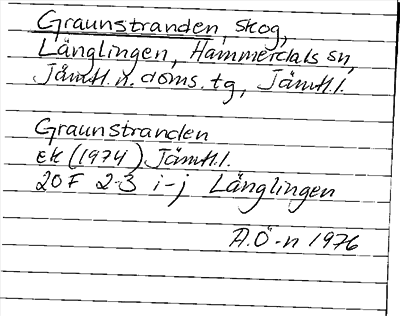 Graunstranden, skog,
Långlingen, Hammerdals sn,
Jämtl. n. doms. tg, Jämtl. l.
Graunstranden
EK (1974) Jämtl. l.
20F 2-3 i-j Långlingen
A.Ö-n 1976